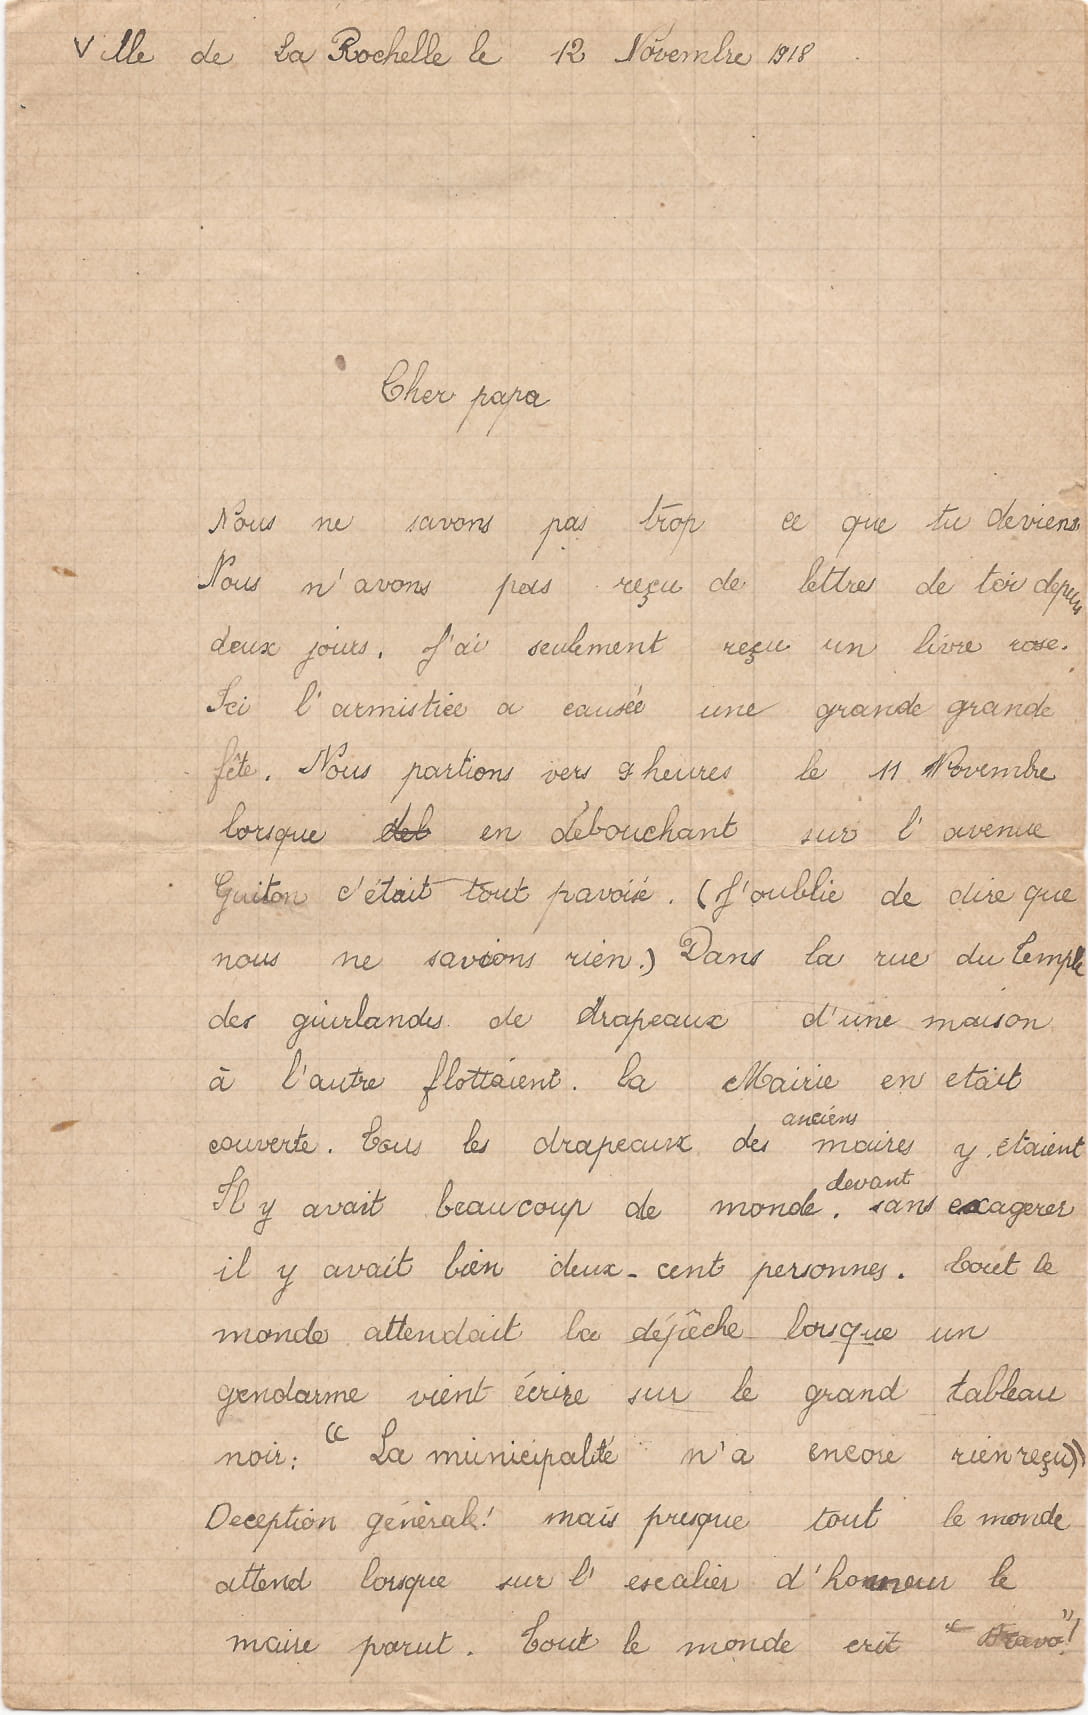 Ville de La Rochelle le 12 Novembre 1918
Cher papa
Nous ne savons pas trop ce que tu deviens
Nous n'avons pas reçu de lettres de toi depuis
deux jours. J'ai seulement reçu un livre rose.
Ici l'armistice a causée une grande grande
fête. Nous partions vers 9 heures le 11 Novembre
lorsque deb en débouchant sur l'avenue
Guiton c'était tout pavoisé. (J'oublie de dire que
nous ne savions rien.) Dans la rue du Temple
des guirlandes de drapeaux d'une maison
à l'autre flottaient. La Mairie en etait
anciens
couverte. Tous les drapeaux des maires y etaient
devant
Il y avait beaucoup de monde. sans exagerer
il y avait bien deux-cent personnes. Tout le
monde attendait la dépêche lorsque un
gendarme vient écrire sur le grand tableau
noir: "La municipalité n'a encore rien reçu"
Deception générale! mais presque tout le monde
attend lorsque sur l'escalier d'honneur le
maire parut. Tout le monde crit "Bravo"!